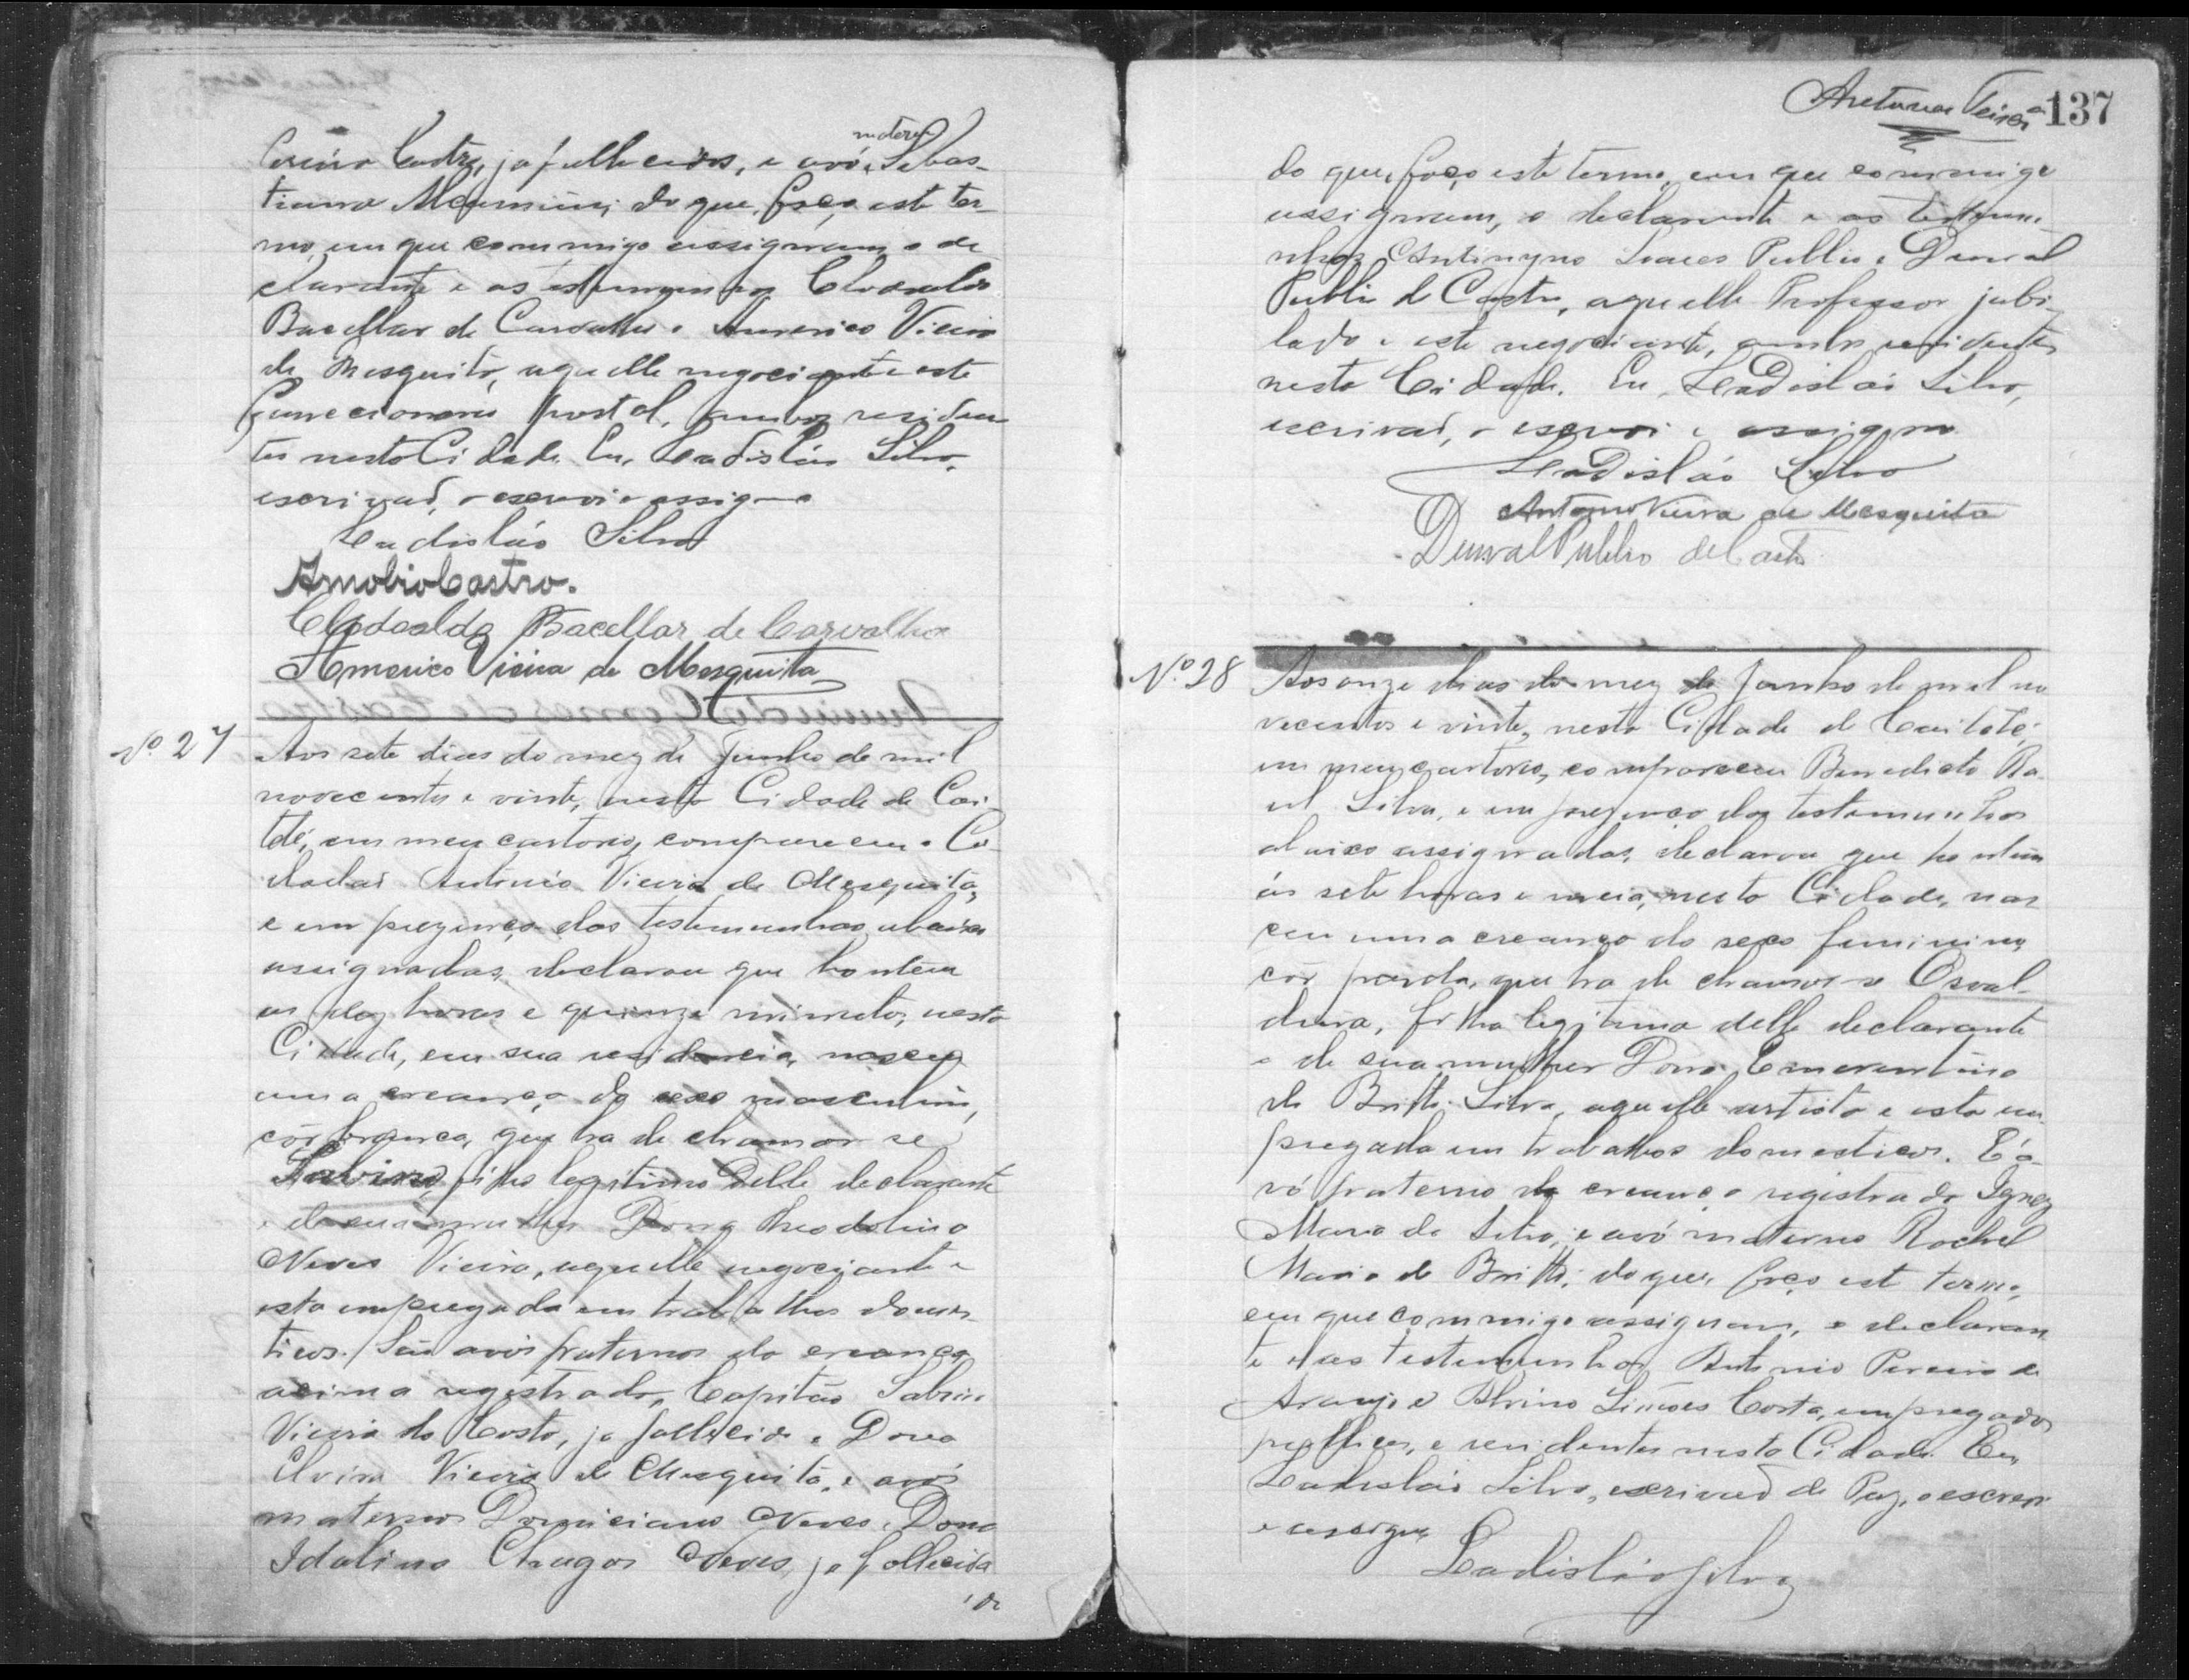 Castro, ja fallecidos, e avó materna Sebas-
tiana do que, faço este ter-
mo, em que commigo assignam, o de
clarante e as testemunhas Clodoaldo
Bacellar de Carvalho e Americo Vieira
de Mesquita, aquelle negociante e este
funccionario postal, ambos residen
tes nesta Cidade. Eu, Ladisláo Silva,
escrivaõ, o escrevi e assigno
Ladisláo Silva
Arnobio Castro.
Clodoaldo Bacellar de Carvalho
Americo Vieira de Mesquita
Nº 27
Aos sete dias do mez de Junho de mil
novecentos e vinte, nesta Cidade de Cai-
teté, em meu cartorio, compareceu o Ci-
dadaõ Antonio Vieira de Mesquita,
e em prezença das testemunhas abaixo
assignadas, declarou que hontem
as dez horas e quinze minutos, nesta
Cidade, em sua residencia, nasceu
uma creança do sexo masculino,
côr branca, que ha de chamar se
Sabino, filho legitimo delle declarante
e de sua mulher Dona Theodolina
Neves Vieira, aquelle negociante e
esta empregada em trabalhos domes-
ticos. Saõ avós paternos da creança
acima registrada, Capitão Sabino
Vieira da Costa, ja fallecido e Dona
Elvira Vieira de Mesquita, e avós
maternos Domiciano Neves e Dona
Idalina Chagas Neves, ja fallecida
137
do que, faço este termo, em que commigo
assignam, o declarante e as testemu-
nhas Antinyno Soares Publio e Durval
Publio de Castro, aquelle Professor jubi-
lado e este negociante, ambos residentes
nesta Cidade. Eu, Ladisláo Silva,
escrivaõ, o escrevi e assigno
Ladisláo Silva
Antonio Vieira de Mesquita
Durval Publio de Castro
Nº 28
Aos onze dias do mez de Junho de mil no
vecentos e vinte, nesta Cidade de Caiteté,
em meu cartorio, compareceu Benedicto Ra
ul Silva, e em prezença das testemunhas
abaixo assignadas, declarou que hontem
ás sete horas e meia, nesta Cidade, nas
ceu uma creança do sexo feminino,
côr parda, que ha de chamar-se Osval
dina, filha legitima delle declarante
e de sua mulher Dona Emerentina
de Britto Silva, aquelle artista e esta em
pregada em trabalhos domesticos. É a-
vó paterna da creança registrada Ignez
Maria da Silva, e avó materna Rachel
Maria de Britto; do que, faço este termo,
em que commigo assignam, o declaran
te e as testemunhas Antonio Pereira de
Araujo e Alvino Simões Costa, empregados
publicos, e residentes nesta Cidade. Eu,
Ladisláo Silva, escrivaõ de Paz, o escrevi
e assigno
Ladisláo Silva